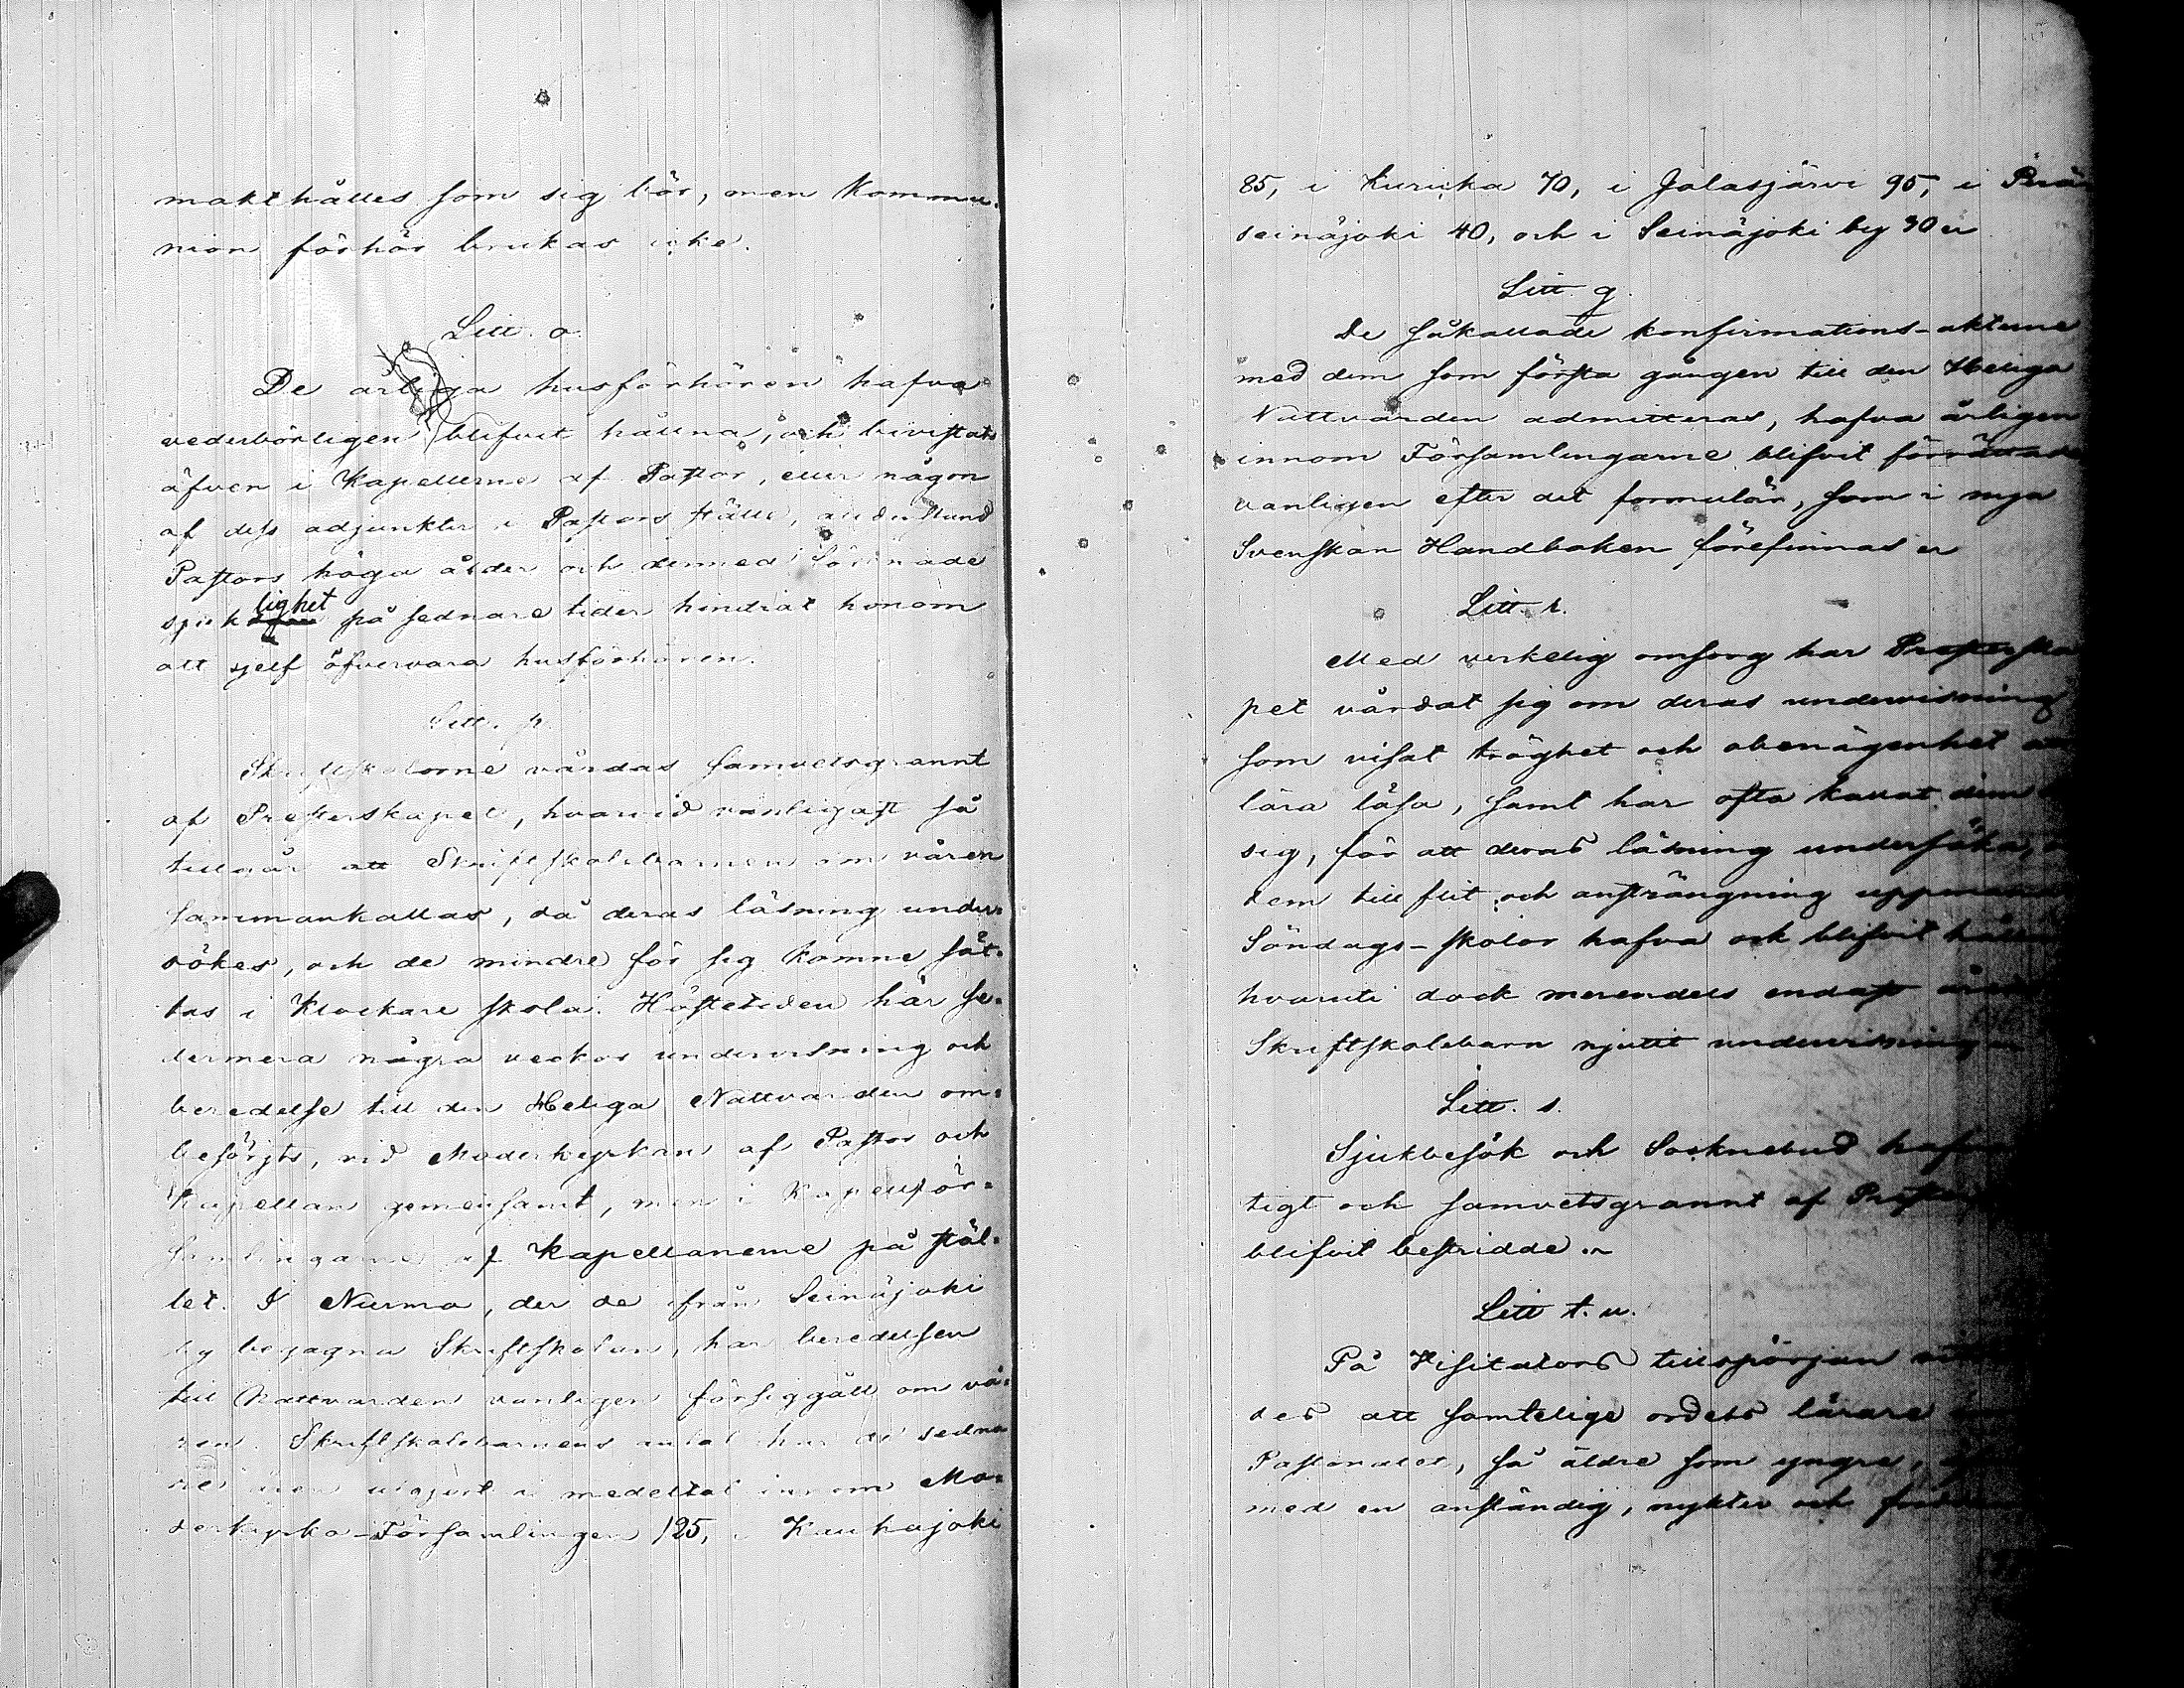 makthålles som sig bör, men Kommu-
nion förhör brukas icke.
Litt. o.
De årliga husförhören hafva
vederbörligen blifvit hållna, och bivistats
äfven i Kapellerne af Pastor, eller någon
af dess adjunkter i Pastors ställe,
Pastors höga ålder och dermed förenade
sjuklighet på sednare tider hindrat honom
att sjelf öfvervara husförhören.
Litt. p.
Skriftskolorne vårdas samvetsgrannt
af Presterskapet, hvarvid vanligast så
tillgår att Skriftskolebarnen om våren
sammankallas, då deras läsning under-
sökes, och de mindre för sig komne sät-
tas i Klockare skola. Hösteliden här se-
dermera några veckor undervisning och
beredelse till den Heliga Nattvarden om-
besörjts, vid Moderkyrkan af Pastor och
Kapellan gemensamt, men i Kapellför-
samlingarne af Kapellanerne på stäl-
let. I Nurmo, der de ifrån Seinäjoki
by begagna Skriftskolan, har beredelsen
till Nattvarden vanligen försiggått om vå-
ren. Skriftskolebarnens antal har de sedna-
re åren utgjort i medeltal innom Mo-
derkyrko-Församlingen 125, i Kauhajoki
85, i Kurikka 70, i Jalasjärvi 95, i Perä-
seinäjoki 40, och i Seinäjoki by 30
Litt. q.
De såkallade konfirmations-akterne
med dem som första gången till den Heliga
Nattvarden admitteras, hafva årligen
innom Församlingarne blifvit förrättade
vanligen efter det formulär, som i nya
Svenskan Handboken förefinnas
Litt. r.
Med verkelig omsorg har Presterska
pet vårdat sig om deras undervisning
som visat tröghet och obenägenhet att
lära läsa, samt har ofta kallat dem
sig, för att deras läsning undersöka,
dem till flit och ansträngning uppmana
Söndags-skolor hafva ock blifvit hållna
hvaruti dock merendels endast
Skriftskolebarn njutit undervisning
Litt. s.
Sjukbesök och Socknebud hafva
tigt och samvetsgrannt af Prester
blifvit bestridde.
Litt t. u.
På Visitators tillspörjan
des att samtelige ordets lärare
Pastoratet, så äldre som yngre,
med en anständig, nykter och